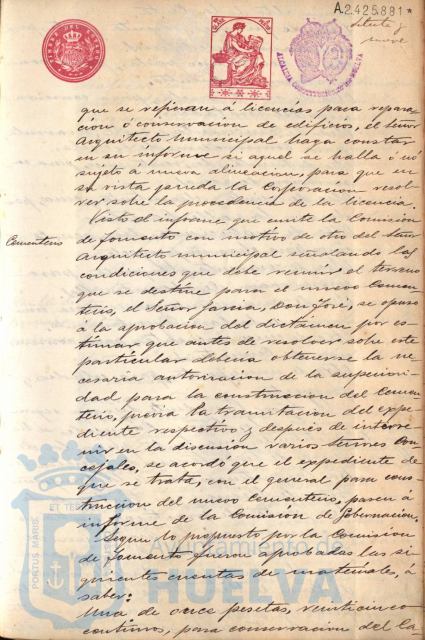 A.2.425.881*
setenta y
nueve
ALCALDIA CONSTITUCIONAL DE HUELVA
que se refieran á licencias para repara
cion ó conservacion de edificios, el Señor
Arquitecto Municipal haga constar
en su informe si aquel se halla ó nó
sujeto a nueva alineacion, para que en
su vista pueda la Corporacion resol
ver sobre la procedencia de la licencia.
Visto el informe que emite la Comision
Cementerio
de fomento con motivo de otro del Señor
Arquitecto municipal señalando las
condiciones que debe reunir el terreno
que se destine para el nuevo Cemen
terio, el Señor Garcia, Don José, se opuso
á la aprobacion del dictamen por es
timar que antes de resolver sobre este
particular deberia obtenerse la ne
cesaria autorizacion de la superiori
dad para la construccion del Cemen
terio, previa la tramitacion del expe
diente respectivo y despues de interve
nir en la discusion varios Señores Con
cejales, se acordó que el expediente de
que se trata, con el general para cons
truccion del nuevo cementerio, pasen á
informe de la Comision de Gobernacion.
Segun lo propuesto por la Comision
de fomento fueron aprobadas las si
guientes cuentas de materiales, á
saber:
Una de once pesetas, veinticinco
centimos, para conservacion del Ca-
PORTUS MARIS
ET TER
Ayuntamiento de
HUELVA